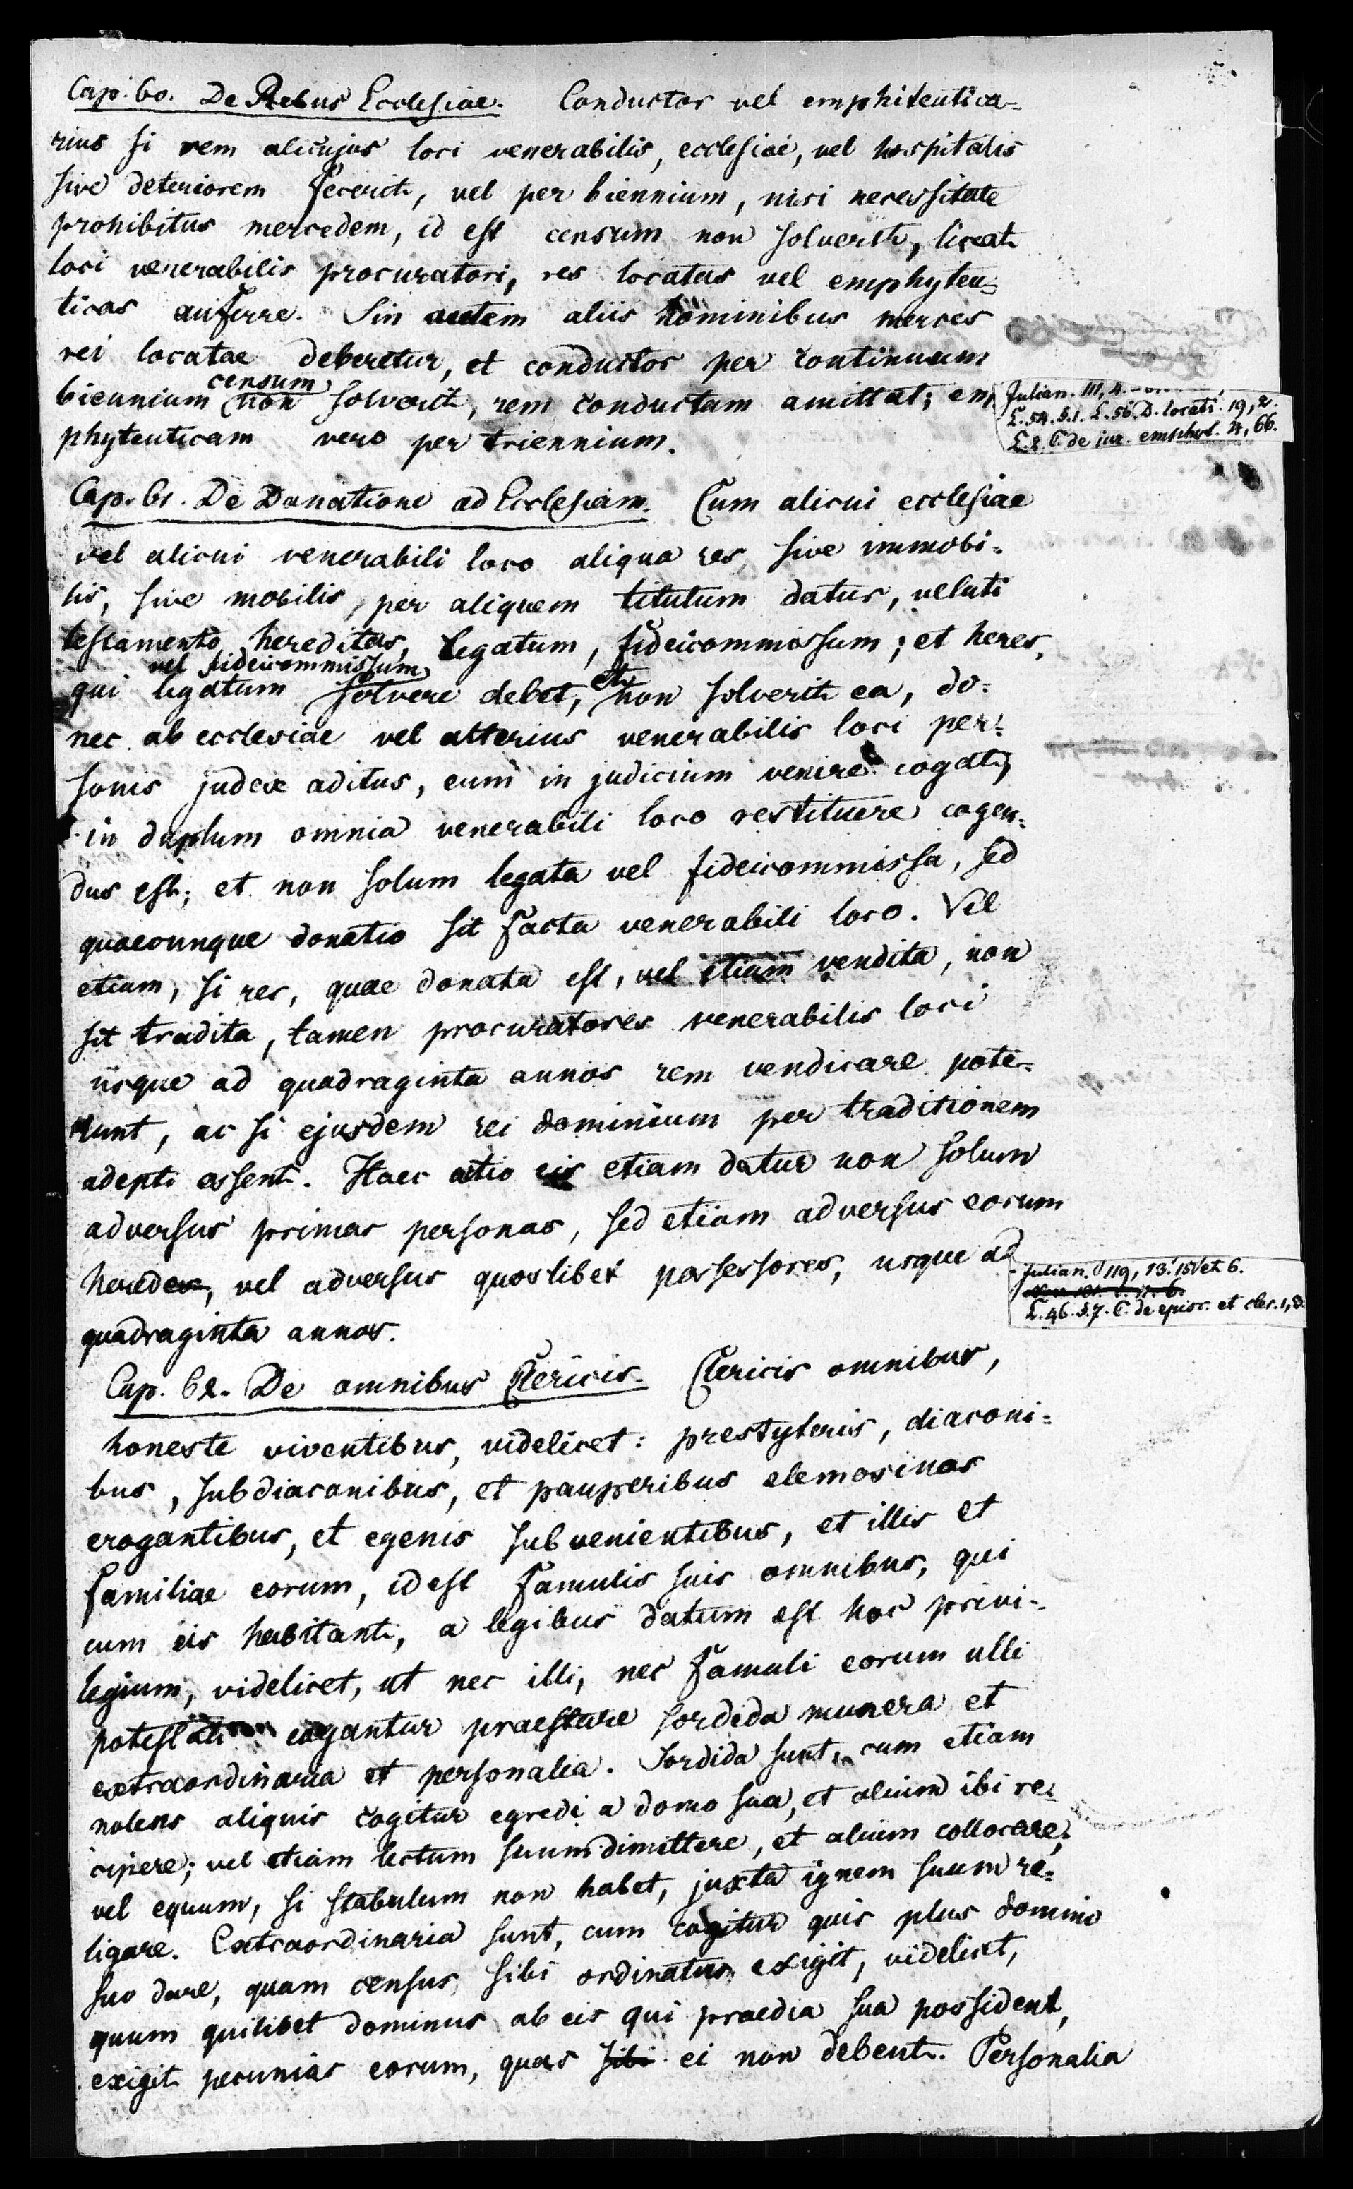 Cap. 60. De Rebus Ecclesiae. Conductor vel emphiteutica=
rius si rem alicujus loci venerabilis, ecclesiae, vel hospitalis
sive deteriorem fecerit, vel per biennium, nisi necessitate
prohibitus mercedem, id est censum non solverit, liceat
loci venerabilis procuratori, res locatas vel emphyteu=
ticas auferre. Sin autem aliis hominibus merces
rei locatae deberetur, et conductor per continuum
censum
biennium non solverit, rem conductam amittat; em
phyteuticam vero per triennium.
Julian. 111, 4.
L. 54. §. 1. L. 56. D. locati. 19, 2.
L. 2. C. de jur. emphyt. 4, 66.
Cap. 61. De Donatione ad Ecclesiam. Cum alicui ecclesiae
vel alicui venerabili loco aliqua res, sive immobi=
lis, sive mobilis, per aliquem titulum datur, veluti
testamento hereditas, legatum, fideicommissum; et heres,
vel fideicommissum
qui legatum solvere debet, et non solverit ea, do=
nec ab ecclesiae vel alterius venerabilis loci per=
sonis judex aditus, eum in judicium venire cogat,
in duplum omnia venerabili loco restituere cogen=
dus est; et non solum legata vel fideicommissa, sed
quaecunque donatio sit facta venerabili loco. Vel
etiam, si res, quae donata est, vel etiam vendita, non
sit tradita, tamen procuratores venerabilis loci
usque ad quadraginta annos rem vendicare pote=
runt, ac si ejusdem rei dominium per traditionem
adepti essent. Haec actio eis etiam datur non solum
adversus primas personas, sed etiam adversus eorum
heredes, vel adversus quoslibet possessores, usque ad
quadraginta annos.
Julian. 119, 13. 15. et 6.
L. 46. §. 7. C. de episc. et cler. 1, 3.
Cap. 62. De omnibus Clericis. Clericis omnibus,
honeste viventibus, videlicet: prestyteris, diaconi=
bus, subdiaconibus, et pauperibus elemosinas
erogantibus, et egenis subvenientibus, et illis et
familiae eorum, id est famulis suis omnibus, qui
cum eis habitant, a legibus datum est hoc privi=
legium, videlicet, ut nec illi, nec famuli eorum ulli
potestati cogantur praestare sordida munera et
extraordinaria et personalia. Sordida sunt, cum etiam
nolens aliquis cogitur egredi a domo sua, et alium ibi re=
cipere; vel etiam lectum suum dimittere, et alium collocare,
vel equum, si stabulum non habet, juxta ignem suum re=
ligare. Extraordinaria sunt, cum cogitur quis plus domino
suo dare, quam census sibi ordinatus exigit, videlicet,
quum quilibet dominus ab eis qui praedia sua possident,
exigit pecunias eorum, quas sibi ei non debent. Personalia